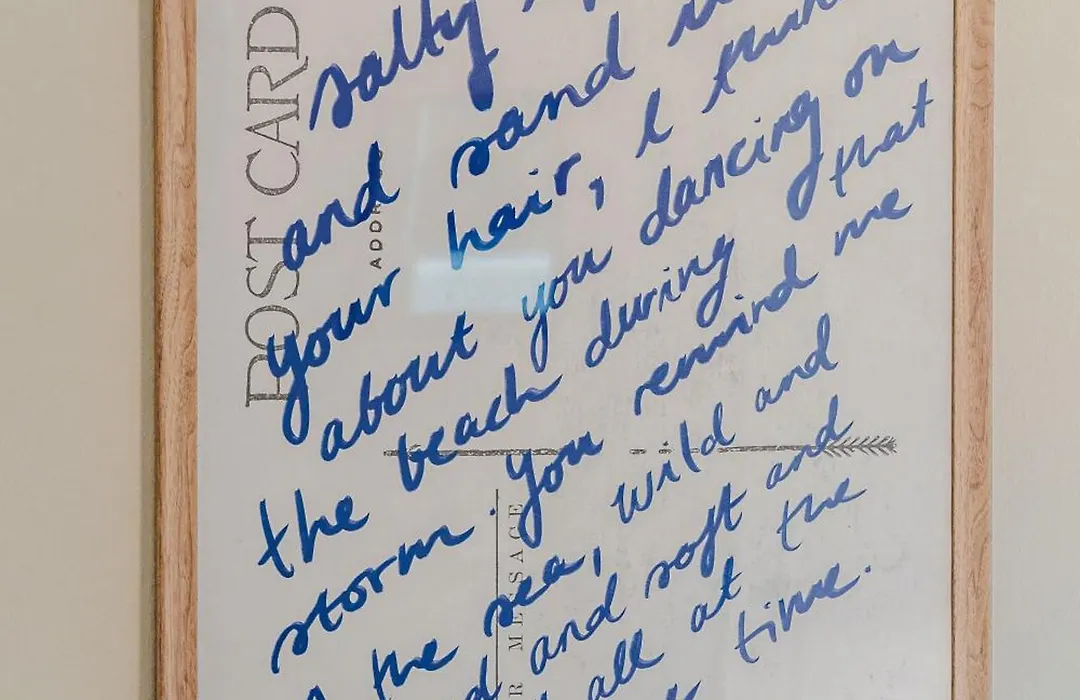 POST CARD
ADDR
salty
and sand
your hair, I think
about you dancing on
the beach during that
storm. You remind me
the sea, wild and
and soft and
all at the
time.
MESSAGE